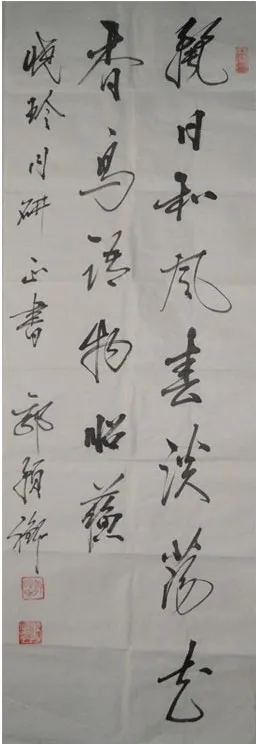 麗日和風春淡蕩花
香鳥語物昭蘇
曉玲同研正書 郭預衡